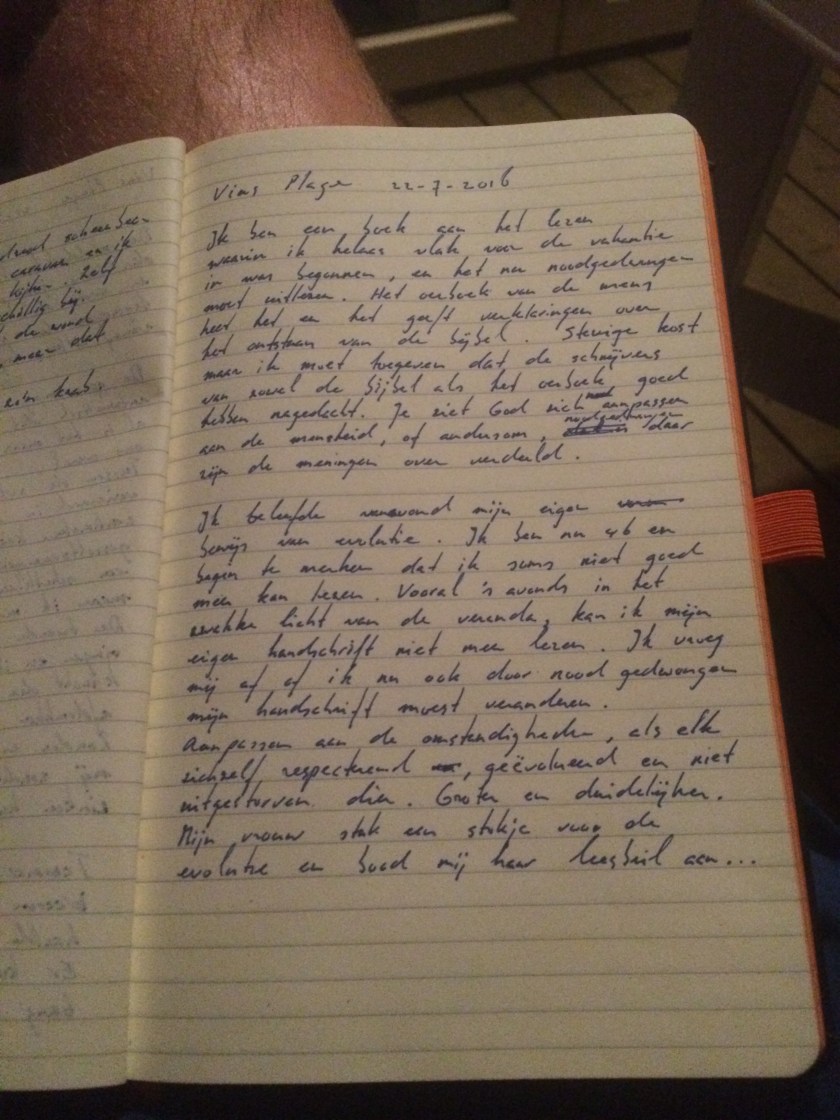 draait scheenbeen
caravan en ik
kijken. Zelf
schallig bij.
de wond
meer dat
een krab
Vias Plage 22-7-2016
Ik ben een boek aan het lezen
waarin ik helaas vlak voor de vakantie
in was begonnen, en het nu noodgedwongen
moet uitlezen. Het oerboek van de mens
heet het en het geeft verklaringen over
het ontstaan van de bijbel. Stevige kost
maar ik moet toegeven dat de schrijvers
van zowel de bijbel als het oerboek goed
hebben nagedacht. Je ziet God zich aanpassen
aan de mensheid, of andersom, noodgedwongen daar
zijn de meningen over verdeeld.
Ik beleefde vanavond mijn eigen
bewijs van evolutie. Ik ben nu 46 en
begon te merken dat ik soms niet goed
meer kan lezen. Vooral 's avonds in het
zwakke licht van de veranda, kan ik mijn
eigen handschrift niet meer lezen. Ik vroeg
mij af of ik nu ook door nood gedwongen
mijn handschrift moest veranderen.
Aanpassen aan de omstandigheden, als elk
zichzelf respecterend, geëvolueerd en niet
uitgestorven dier. Groter en duidelijker.
Mijn vrouw stak een stokje voor de
evolutie en bood mij haar leesbril aan...